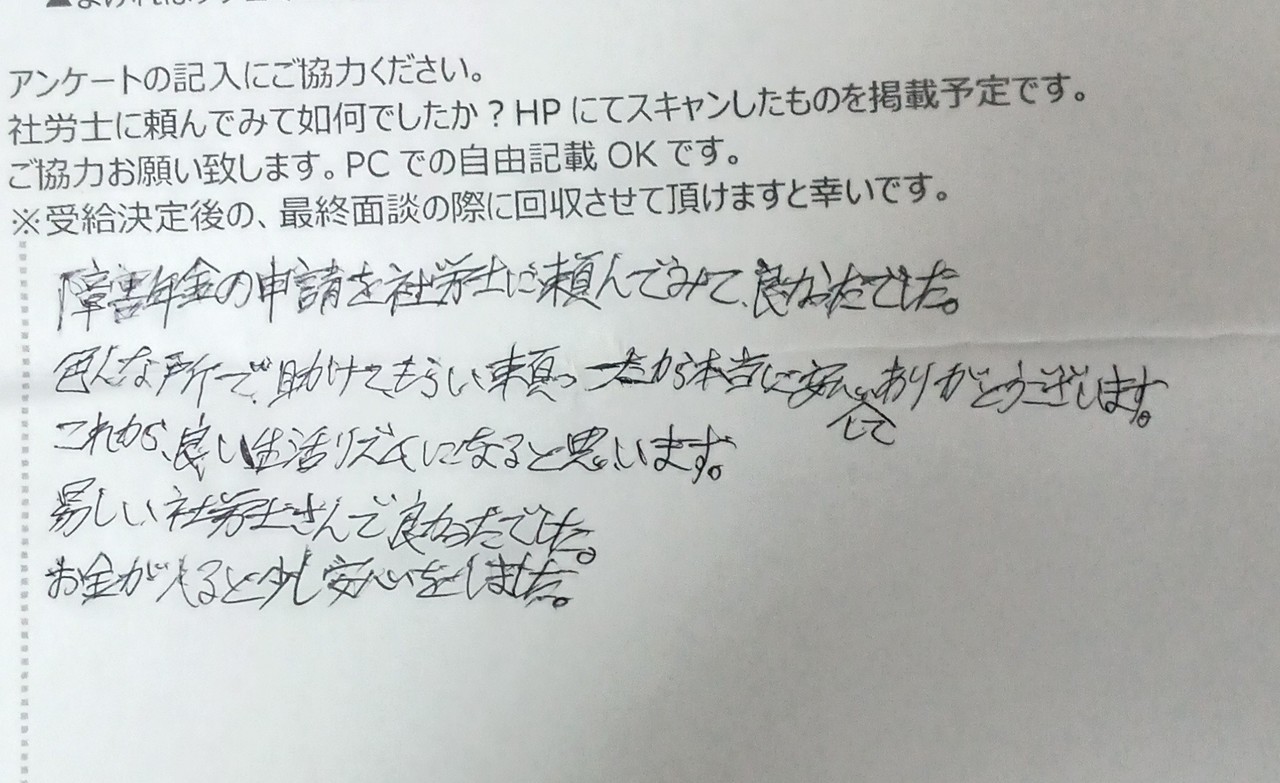 アンケートの記入にご協力ください。
社労士に頼んでみて如何でしたか？HPにてスキャンしたものを掲載予定です。
ご協力お願い致します。PCでの自由記載OKです。
※受給決定後の、最終面談の際に回収させて頂けますと幸いです。
障害年金の申請を社労士に頼んでみて、良かったでした。
色んな所で助けてもらい頼ったから本当に安心してありがとうございます。
これから、良い生活リズムになると思います。
易しい社労士さんで良かったでした。
お金が入ると少し安心をしました。